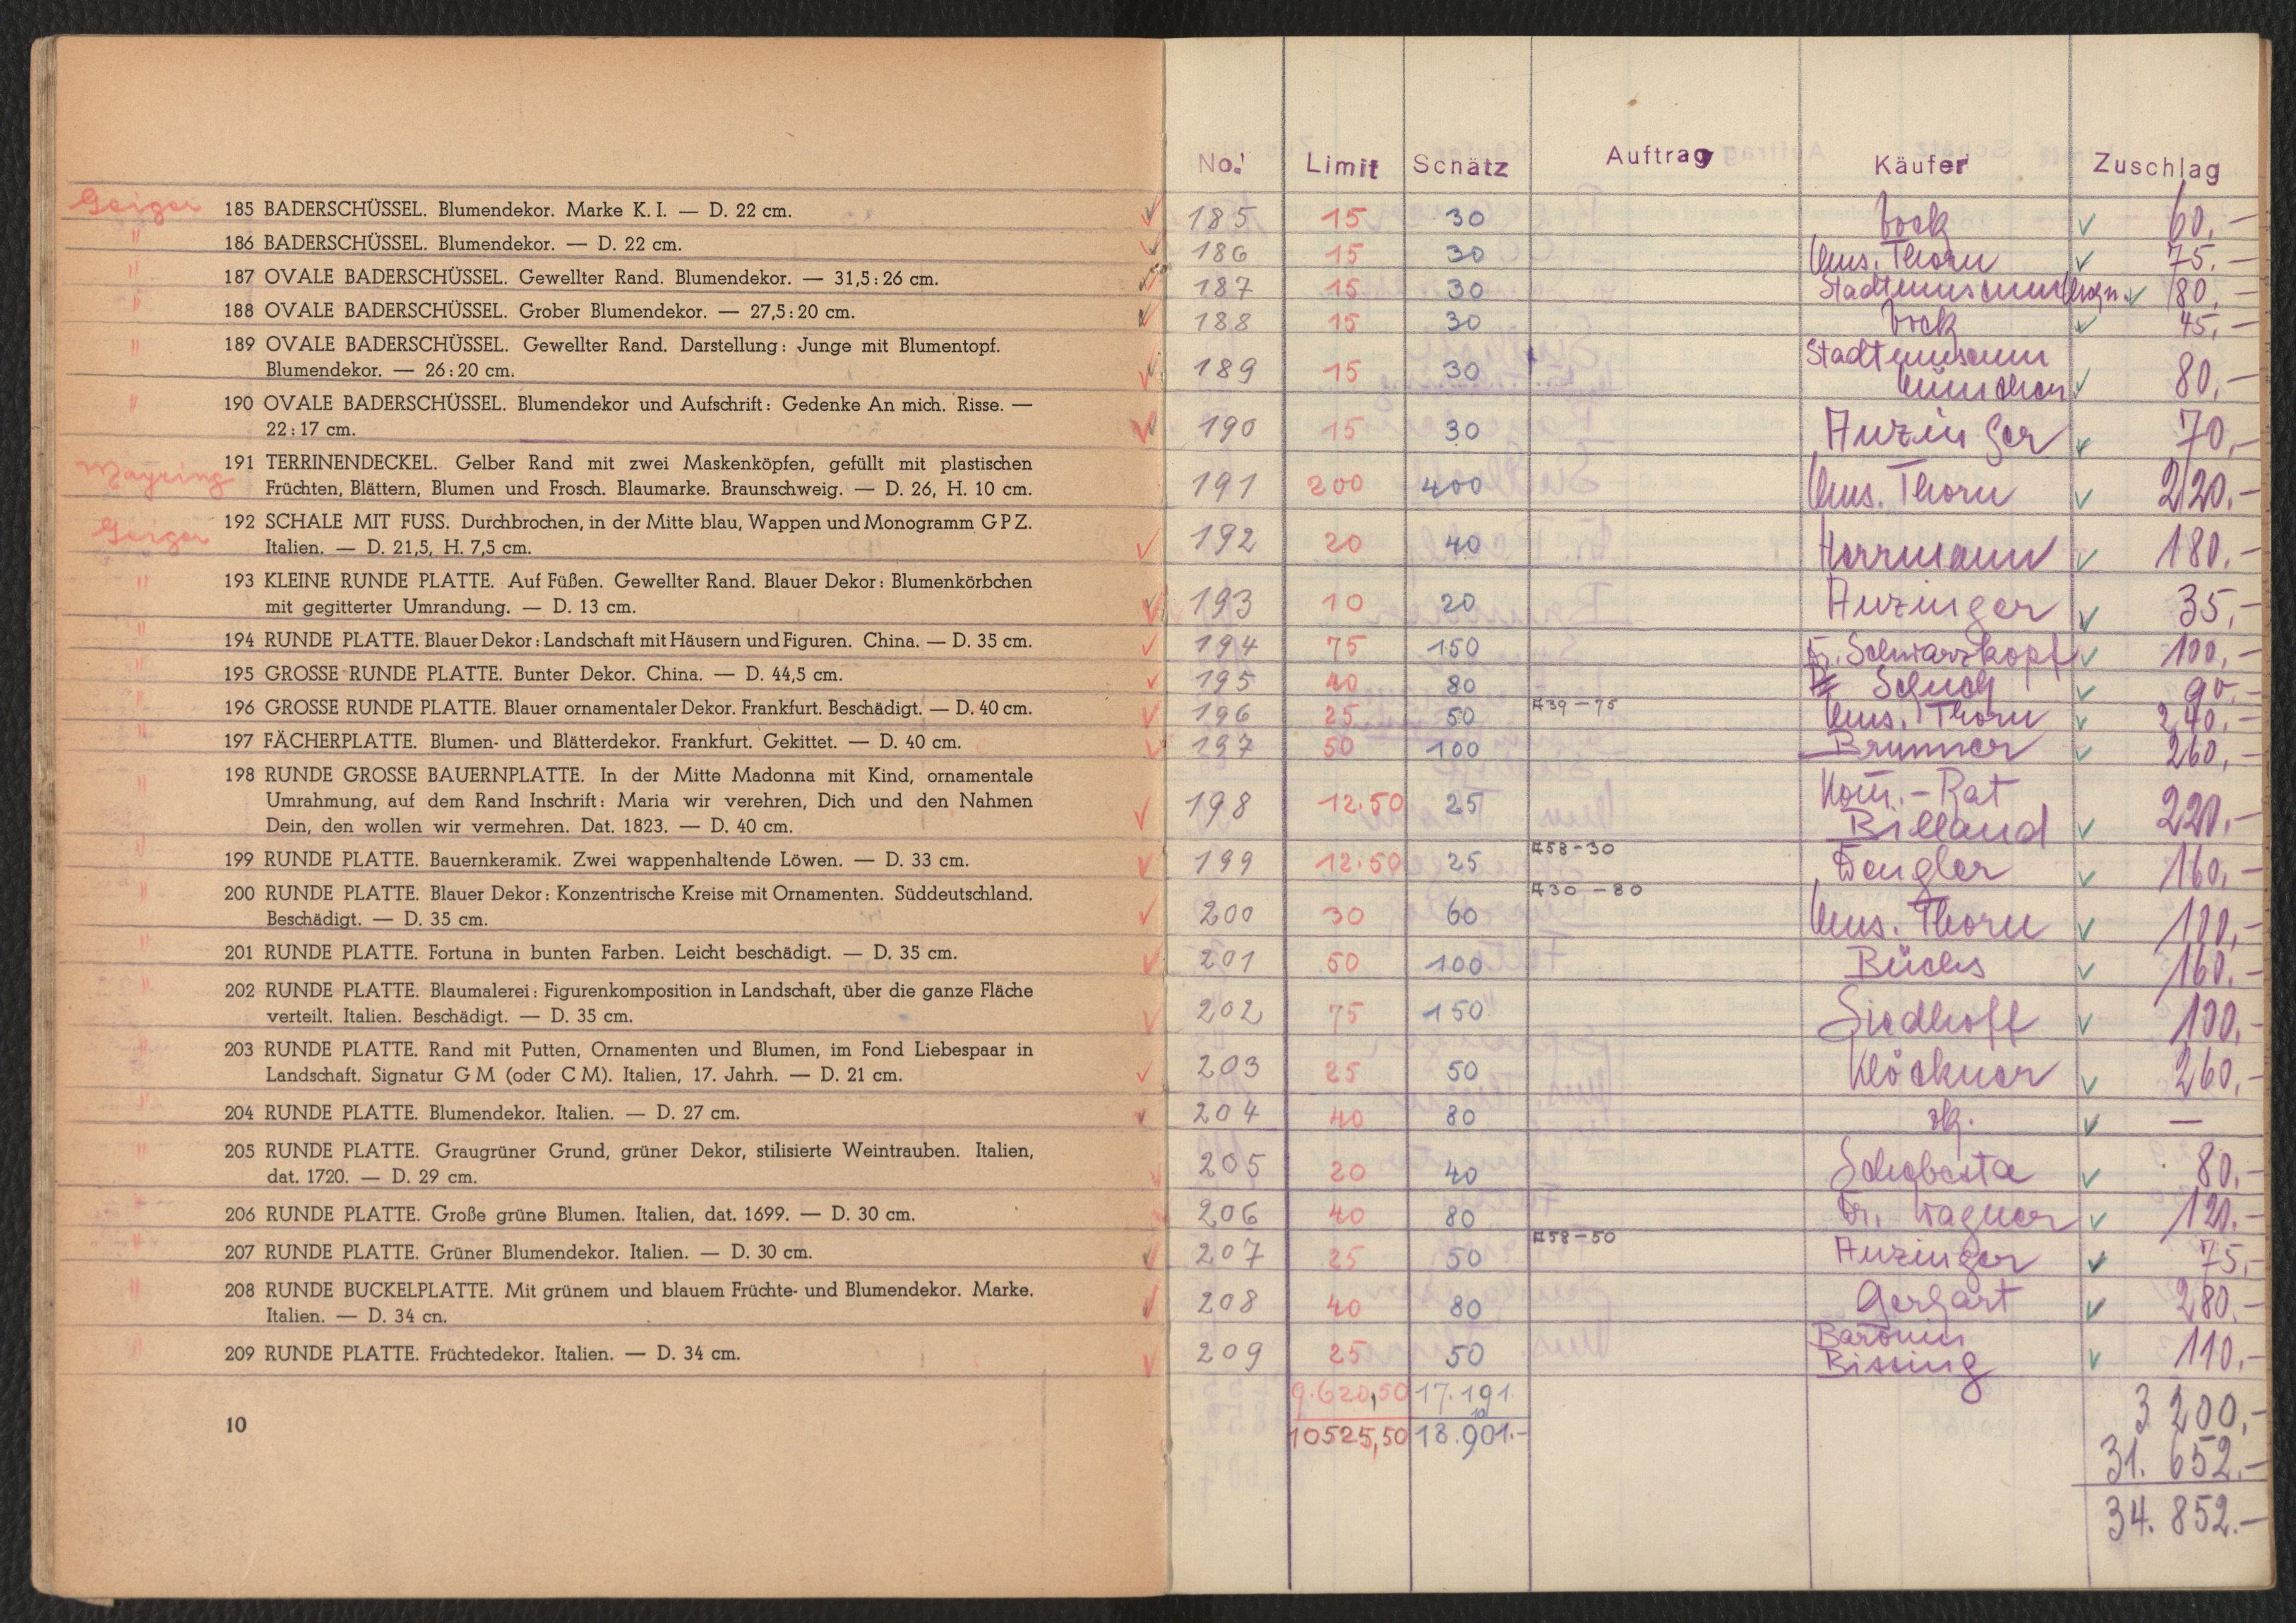 Geiger 185 BADERSCHÜSSEL. Blumendekor. Marke K. I. — D. 22 cm.
" 186 BADERSCHÜSSEL. Blumendekor. — D. 22 cm.
" 187 OVALE BADERSCHÜSSEL. Gewellter Rand. Blumendekor. — 31,5 : 26 cm.
" 188 OVALE BADERSCHÜSSEL. Grober Blumendekor. — 27,5 : 20 cm.
" 189 OVALE BADERSCHÜSSEL. Gewellter Rand. Darstellung: Junge mit Blumentopf.
Blumendekor. — 26 : 20 cm.
" 190 OVALE BADERSCHÜSSEL. Blumendekor und Aufschrift: Gedenke An mich. Risse. —
22 : 17 cm.
Mayring 191 TERRINENDECKEL. Gelber Rand mit zwei Maskenköpfen, gefüllt mit plastischen
Früchten, Blättern, Blumen und Frosch. Blaumarke. Braunschweig. — D. 26, H. 10 cm.
Geiger 192 SCHALE MIT FUSS. Durchbrochen, in der Mitte blau, Wappen und Monogramm G P Z.
Italien. — D. 21,5, H. 7,5 cm.
" 193 KLEINE RUNDE PLATTE. Auf Füßen. Gewellter Rand. Blauer Dekor: Blumenkörbchen
mit gegitterter Umrandung. — D. 13 cm.
" 194 RUNDE PLATTE. Blauer Dekor: Landschaft mit Häusern und Figuren. China. — D. 35 cm.
" 195 GROSSE RUNDE PLATTE. Bunter Dekor. China. — D. 44,5 cm.
" 196 GROSSE RUNDE PLATTE. Blauer ornamentaler Dekor. Frankfurt. Beschädigt. — D. 40 cm.
" 197 FÄCHERPLATTE. Blumen- und Blätterdekor. Frankfurt. Gekittet. — D. 40 cm.
" 198 RUNDE GROSSE BAUERNPLATTE. In der Mitte Madonna mit Kind, ornamentale
Umrahmung, auf dem Rand Inschrift: Maria wir verehren, Dich und den Nahmen
Dein, den wollen wir vermehren. Dat. 1823. — D. 40 cm.
" 199 RUNDE PLATTE. Bauernkeramik. Zwei wappenhaltende Löwen. — D. 33 cm.
" 200 RUNDE PLATTE. Blauer Dekor: Konzentrische Kreise mit Ornamenten. Süddeutschland.
Beschädigt. — D. 35 cm.
" 201 RUNDE PLATTE. Fortuna in bunten Farben. Leicht beschädigt. — D. 35 cm.
" 202 RUNDE PLATTE. Blaumalerei: Figurenkomposition in Landschaft, über die ganze Fläche
verteilt. Italien. Beschädigt. — D. 35 cm.
" 203 RUNDE PLATTE. Rand mit Putten, Ornamenten und Blumen, im Fond Liebespaar in
Landschaft. Signatur G M (oder C M). Italien, 17. Jahrh. — D. 21 cm.
" 204 RUNDE PLATTE. Blumendekor. Italien. — D. 27 cm.
" 205 RUNDE PLATTE. Graugrüner Grund, grüner Dekor, stilisierte Weintrauben. Italien,
dat. 1720. — D. 29 cm.
" 206 RUNDE PLATTE. Große grüne Blumen. Italien, dat. 1699. — D. 30 cm.
" 207 RUNDE PLATTE. Grüner Blumendekor. Italien. — D. 30 cm.
" 208 RUNDE BUCKELPLATTE. Mit grünem und blauem Früchte- und Blumendekor. Marke.
Italien. — D. 34 cn.
" 209 RUNDE PLATTE. Früchtedekor. Italien. — D. 34 cm.
10
No. Limit Schätz Auftrag Käufer Zuschlag
185 15 30 Bock 60,—
186 15 30 Mus. Thorn 75.—
187 15 30 Stadtmuseum 80,—
188 15 30 Bock 45,—
189 15 30 Stadtmuseum
München 80,—
190 15 30 Anzinger 70,—
191 200 400 Mus. Thorn 220.—
192 20 40 Herrmann 180.—
193 10 20 Anzinger 35,—
194 75 150 Dr. Schwarzkopf 100,—
195 40 80 Schuch 90.—
196 25 50 A39–75 Mus. Thorn 240.—
197 50 100 Brunner 260,—
198 12.50 25 Kom.-Rat
Billand 220,—
199 12.50 25 A58–30 Dengler 160,—
200 30 60 A30–80 Mus. Thorn 100,—
201 50 100 Büchs 160.—
202 75 150 Siedhoff 100,—
203 25 50 Klöckner 260,—
204 40 80 —
205 20 40 Schobesta 80,—
206 40 80 Dr. Wagner 120.—
207 25 50 A58–50 Anzinger 75,—
208 40 80 Gerhart 280.—
209 25 50 Baronin
Bissing 110,—
9.620,50 17.191. 3 200,—
10525,50 18.901.— 31.652.—
34.852.—